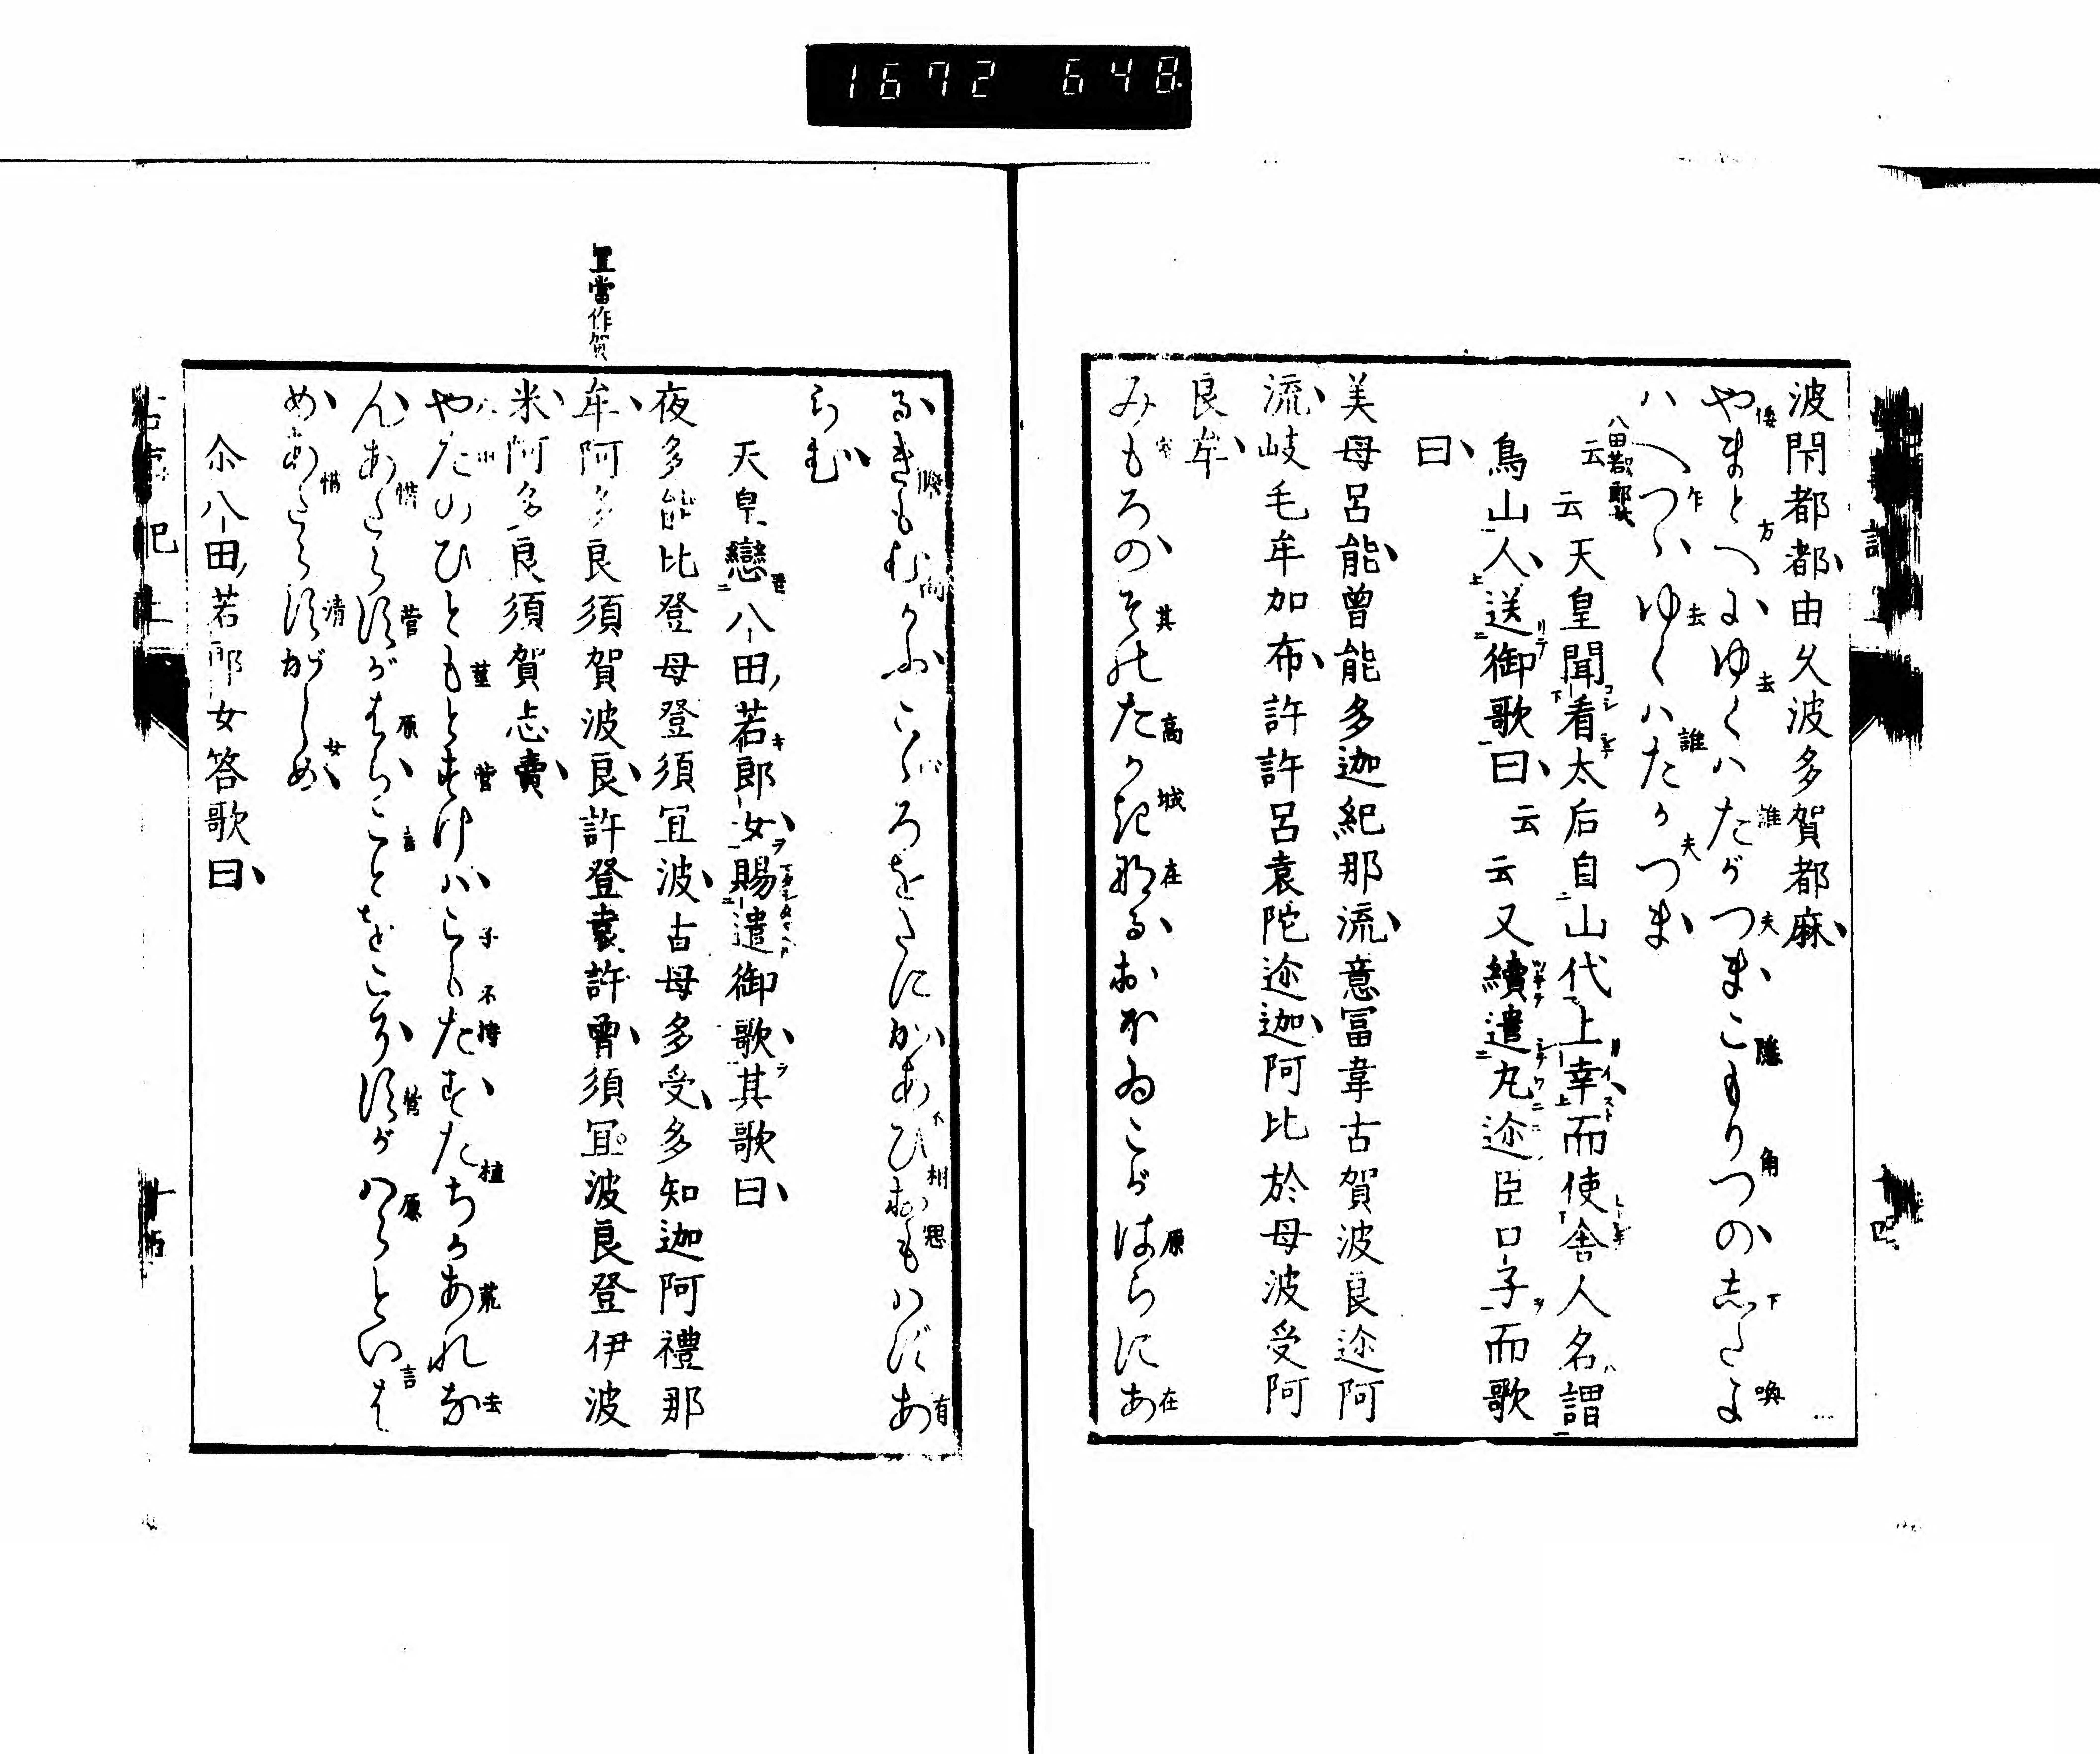 1672 648
波閇都都由久波多賀都麻
やまとへにゆくハたがつまこもりつの志たよ
ハへつゝゆくハたがつま
云天皇聞看太后自山代上幸而使舎人名謂
八田若郎女云
鳥山人送御歌曰云云又續遣丸迩臣口子而歌
曰
美母呂能曽能多迦紀那流意冨韋古賀波良迩阿
流岐毛牟加布許許呂袁陀迩迦阿比於母波受阿
良牟
みもろのそのたかきなるおほゐこがはらにあ
るきもむかふこゝろをだにかあひおもハずあ
らむ
天皇戀八田若郎女賜遣御歌其歌曰
夜多能比登母登須宜波古母多受多知迦阿禮那
牟阿多良須賀波良許登袁許曽須宜波良登伊波
米阿多良須賀志賣
宜當作賀
やたのひともとすげハこもたずたちかあれな
んあたらすがはらことをこそすがハらといは
めあたらすがしめ
尒八田若郎女答歌曰